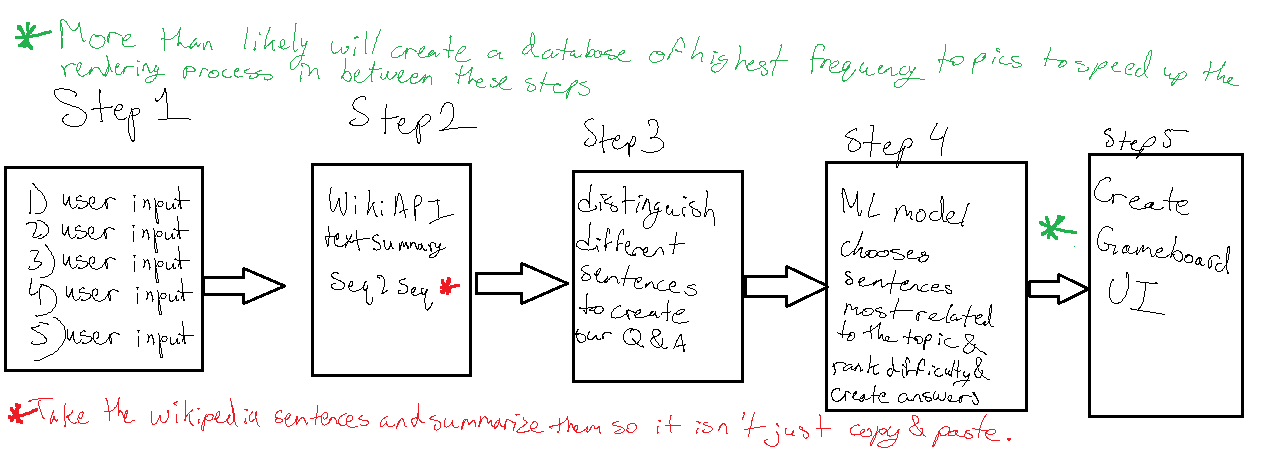 * More than likely will create a database of highest frequency topics to speed up the
rendering process in between these steps
Step 1
1) user input
2) user input
3) user input
4) user input
5) user input
Step 2
Wiki API
text summary
Seq 2 Seq *
Step 3
distinguish
different
sentences
to create
our Q & A
Step 4
ML model
chooses
sentences
most related
to the topic &
rank difficulty &
create answers
*
Step 5
Create
Gameboard
UI
* Take the wikipedia sentences and summarize them so it isn't just copy & paste.